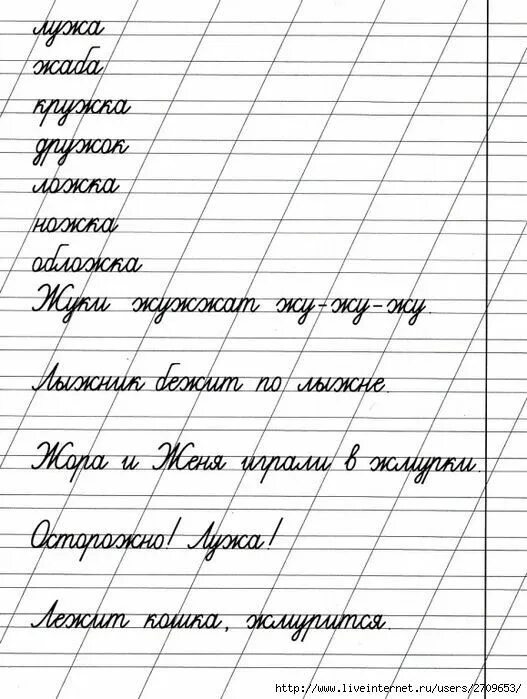 лужа
жаба
кружка
дружок
ложка
ножка
обложка
Жуки жужжат жу-жу-жу.
Лыжник бежит по лыжне.
Жора и Женя играли в жмурки.
Осторожно! Лужа!
Лежит кошка, жмурится.
http://www.liveinternet.ru/users/2709653/